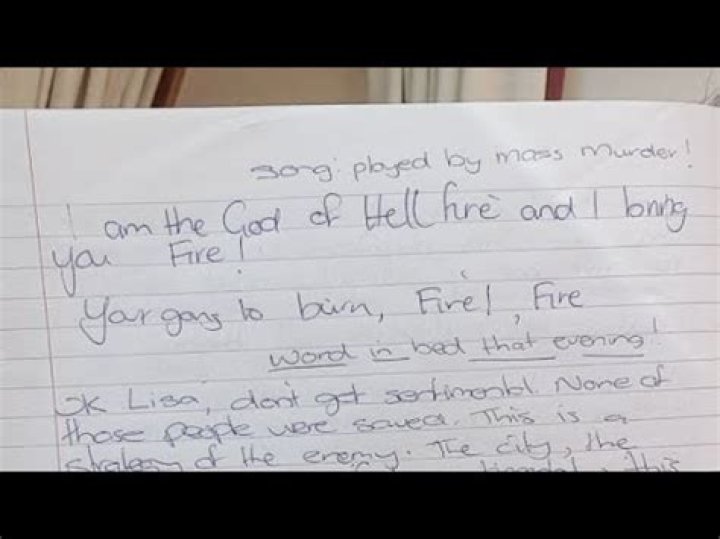 song: played by mass murder!
I am the God of Hell fire and I bring
you Fire!
Your gong to burn, Fire!, Fire
Word in bed that evening!
OK Lisa, don't get sentimental. None of
those people were saved. This is a
strategy of the enemy. The city, the
this